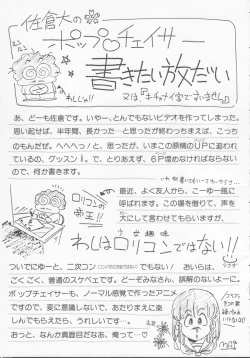 佐倉大の
ポップ♡チェイサー
書きたい放だい
又は、『キチャナイ字ですいません』
わしじゃ!!
あ、どーも佐倉です。いやー、とんでもないビデオを作ってしまった。
思い起せば、半年間、長かった…と思ったが終わっちまえば、こっち
のもんだぜ。へへへっ!と、思ったが、いまこの原稿のUPに追われ
ているの、グッスン!で、とりあえず、6P埋めなければならない
ので、何か書きます。
ロリコンの
帝王!!
最近、よく友人から、こーゆー風に
呼ばれます。この場を借りて、声を
大にして言わしてもらいますが、
わしはロリコンではない!!
少女趣味
ついでにゆーと、二次コン
でもない!あいらは、
ごくごく、普通のスケベです。どーぞみなさん、誤解のないよーに。
ポップチェイサーも、ノーマル感覚で作ったアニメ
ですので、変に意識しないで、あたりまえに楽
しんでもらえたら、うれしいです…。
おっと、なんか真面目だなあ、俺って…♡